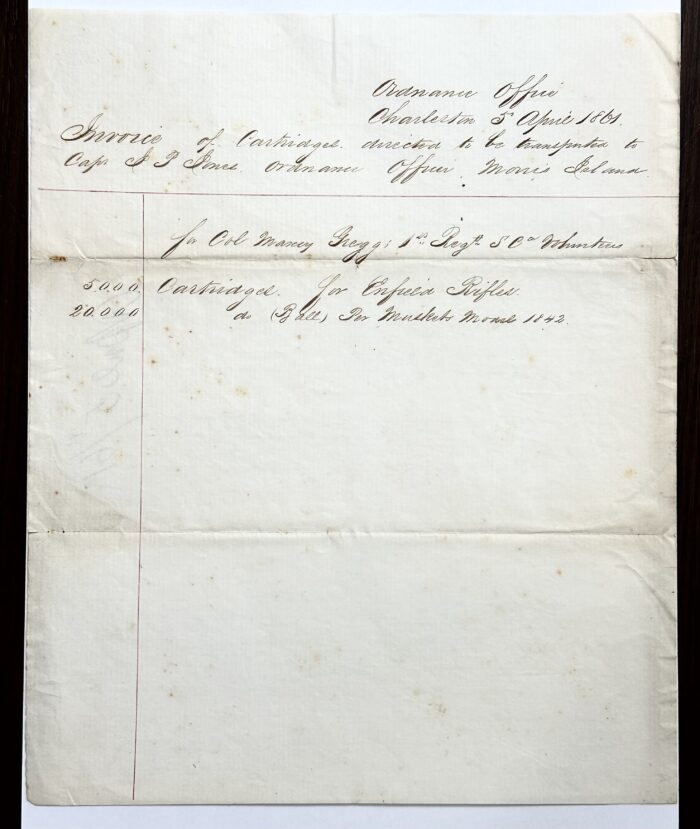 Ordnance Office
Charleston 5 April 1861.
Invoice of Cartridges. directed to be transported to
Capt Jones. Ordnance Officer. Morris Island.
for Col Maxcy Gregg; 1st. Regt. S Ca Volunteers
5.000 Cartridges. for Enfield Rifles.
20.000 do (Ball) For Muskets Model 1842.